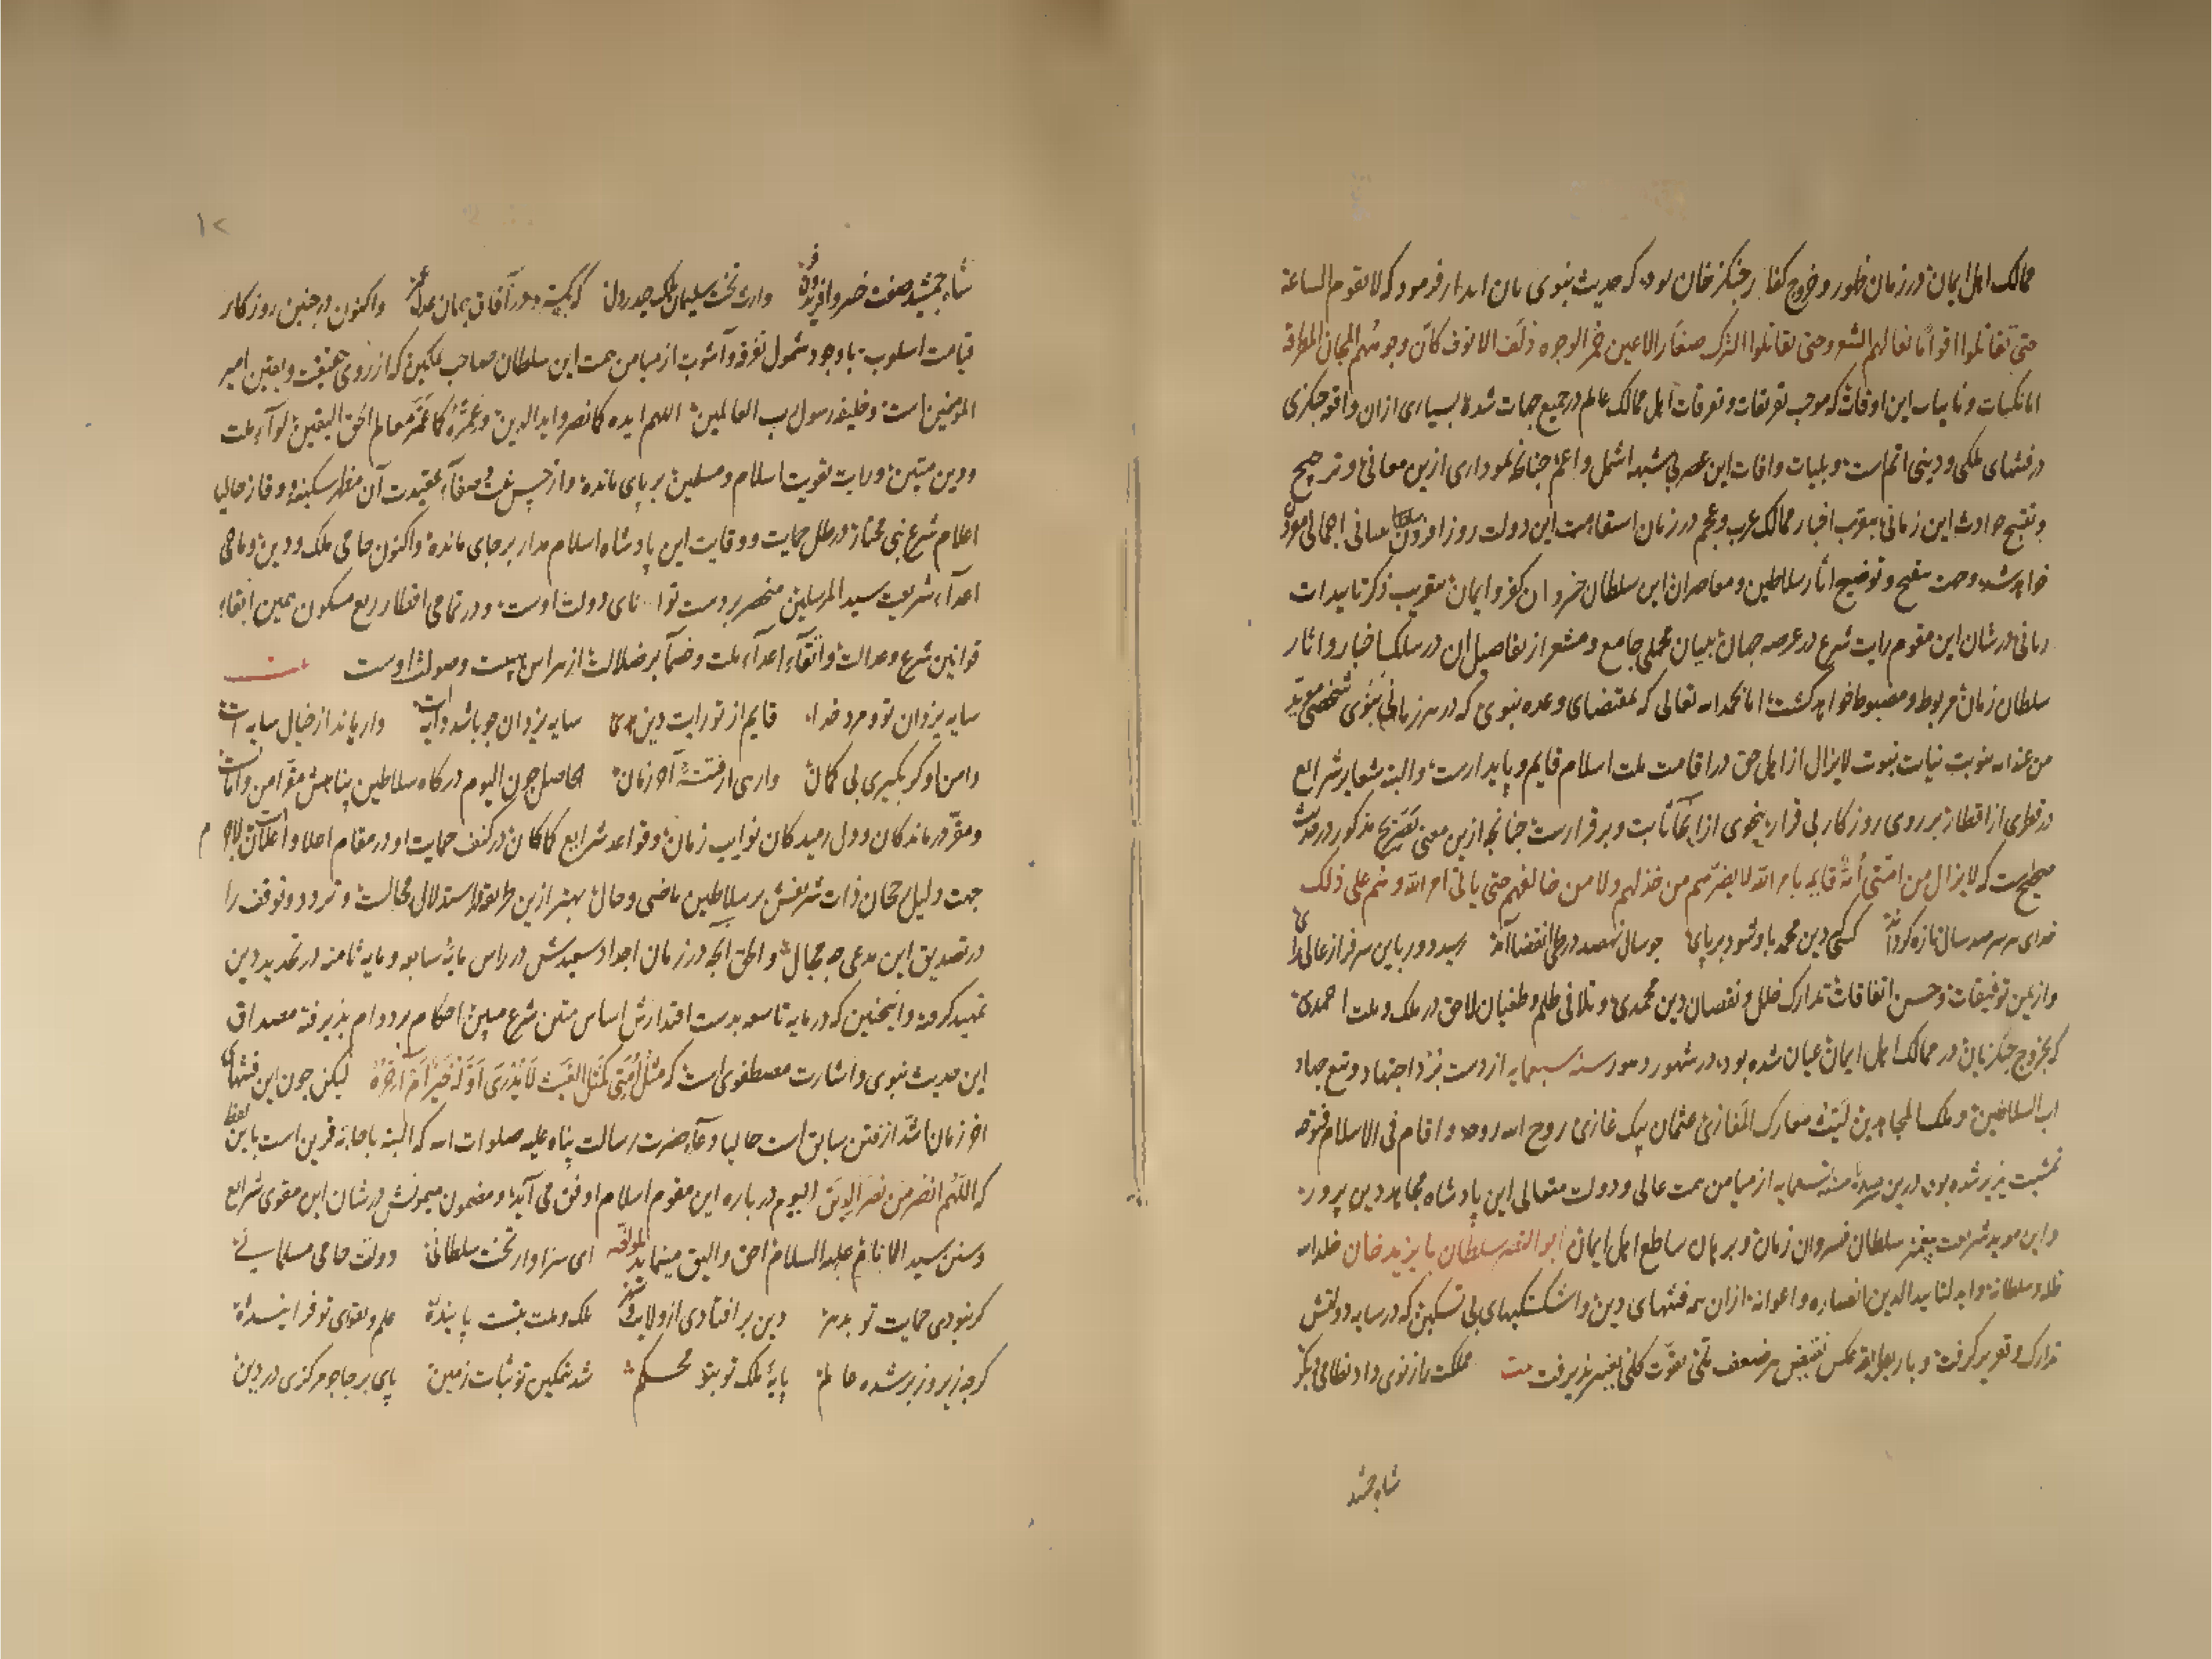 ممالک اهل ایمان در زمان ظهور و خروج کفار چنکیزخان بود که حدیث نبوی بان انذار فرمود که لا تقوم الساعة
حتی تقاتلوا اقواما نعالهم الشعر وحتی تقاتلوا الترک صغار الاعین حمر الوجوه ذلف الانوف کان وجوههم المجان المطرقة
این اوقات که موجب تفریقات و تفرقات اهل ممالک عالم در جمیع جهات شده بسیاری ازان واقعه جنکزی
در فتنهای ملکی و دینی اتم است و بلیات و افات این عصر بی شبهه اشمل و اعم چنانچه نموداری ازین معانی و ترجیح
و تقبیح حوادث این زمانی بتقریب اخبار ممالک عرب و عجم در زمان استقامت این دولت روز افزون اجمالی
خواهد شد و جهت تنقیح و توضیح آثار سلاطین و معاصران این سلطان خسروان کفر و ایمان بتقریب ذکر تاییدات
ربانی در شان این مقوم رایت شرع در عرصه جهان بیان مجملی جامع و مشعر از تفاصیل ان در سلک اخبار و اثار
سلطان زمان مربوط و مضبوط خواهد کشت اما بحمد الله تعالی که بمقتضای وعده نبوی که در هر زمانی بنحوی شخصی مؤید
من عند الله بنوبت نیابت نبوت لایزال از اهل حق در اقامت ملت اسلام قایم و پایدارست و البته شعایر شرایع
در قطری از اقطار بر روی روزکار بی قرار بنحوی از انحا ثابت و برقرارست چنانچه ازین معنی بتصریح مذکور در حدیث
صحیح است که لا یزال من امتی أمة قایمه بامر الله لا یضرهم من خذلهم ولا من خالفهم حتی یاتی امر الله وهم علی ذلک
خدای هر سر صد سال تازه کرداند کسی که دین محمد باو شود برپای چو سال نهصد در طی انقضا آمد رسید دور باین سرفراز عالی رای
و از یمن توفیقات و حسن اتفاقات تدارک خلل و نقصان دین محمدی و تلافی ظلم و طغیان لاحق در ملک و ملت احمدی
که بخروج جنکزیان در ممالک اهل ایمان عیان شده بود در شهور و حدود سنه سبعمایه از دست نبرد اجتهاد و تیغ جهاد
اب السلاطین و ملک المجاهدین لیث معارک المغازی عثمان بیک غازی روح الله روحه و اقام فی الاسلام فتوحه
تمشیت پذیر شده بود درین سنه تسعمایه از میامن همت عالی و دولت متعالی این پادشاه مجاهد دین پرور
و این موید شریعت پیغمبر سلطان خسروان زمان و برهان ساطع اهل ایمان ابو الفتح سلطان بایزید خان خلد الله
ظله و سلطانه و اید لتایید الدین انصاره و اعوانه ازان همه فتنهای دین و اشکستکیهای بی تسکین که در سایه دولتش
تدارک و تعزیر کرفت و باز بطریقه عکس نقیض هر ضعف ملکی بقوت کلی تغییر پذیرفت بیت مملکت را ز نوی داد نظامی دیکر
شاه جمشید
شاه جمشید صفت خسرو افریدون فر وارث تخت سلیمان ملک حیدر دل که بکسترد در آفاق جهان عدل عمر و اکنون در چنین روزکار
قیامت اسلوب با وجود شمول تفرقه و آشوب از میامن همت این سلطان صاحب تمکین که از روی حقیقت و یقین امیر
المومنین است و خلیفه رسول رب العالمین اللهم ایده کما نصر و اید الدین و عمره کما عمر معالم الحق الیقین لوآء ملت
و دین متین و رایت تقویت اسلام و مسلمین بر پای مانده و از حسن نیت و صفآء عقیدت آن مظهر سکینه و وقار حالیا
اعلام شرع نبی مختار در ظلل حمایت و وقایت این پادشاه اسلام مدار بر جای مانده و اکنون حامی ملک و دین و ماحی
اعدآء شریعت سید المرسلین منحصر بر دست توانای دولت اوست و در تمامی اقطار ربع مسکون همین ابقاء
قوانین شرع و عدالت و اتقآء اعدآء ملت و خصمآء پر ضلالت از هراس هیبت و صولت اوست
سایه یزدان تو و مرد خدا قایم از تو رایت دین سایه یزدان چو باشد دایه‌ات وا رهاند از خیال سایه‌ات
دامن او کیر بکیری بی کمان وا رهی از فتنه آخر زمان الحاصل چون الیوم درکاه سلاطین پناهش مقر امن و امانت
و مفر درماندکان و دل رمیدکان نوایب زمان و قواعد شرایع کماکان در کنف حمایت او در مقام اعلا و اعلان
جهت دلیل رجحان ذات شریفش بر سلاطین ماضی و حال بهتر ازین طریقه استدلالی محالست و تردد و توقف را
در تصدیق این مدعی چه مجال و الحق انچه در زمان اجداد سعیدش در راس مایه سابعه و مایه ثامنه در تجدید دین
تمهید کرفته و اینچنین که در مایه تاسعه بدست اقتدارش اساس متین شرع مبین احکام بر دوام پذیرفته مصداق
این حدیث نبوی و اشارت مصطفوی است که مثل امتی کمثل الغیث لا یدری اوله خیر ام آخره لیکن چون این فتنهای
اخر زمان اشد از فتن سابق است حالیا دعآء حضرت رسالت پناه علیه صلوات الله که البته باجابة قرین است باین لفظ
که اللهم انصر من نصر الدین الیوم در باره این مقوم اسلام اوفق می آید و مضمون میمونش در شان این مقوی شرایع
و سنن سید الانام علیه السلام احق و الیق مینماید لمؤلفه ای سزاوار تخت سلطانی دولتت حامی مسلمانی
کر نبودی حمایت تو بدهر دین بر افتادی از ولایت و شهر ملک و ملت بتست پاینده علم و تقوی تو فزاینده
کرچه زیر و زبر شده عالم پایهٔ ملک تو بتو محکم شد تمکین تو ثبات زمین پای برجا چو مرکزی در دین